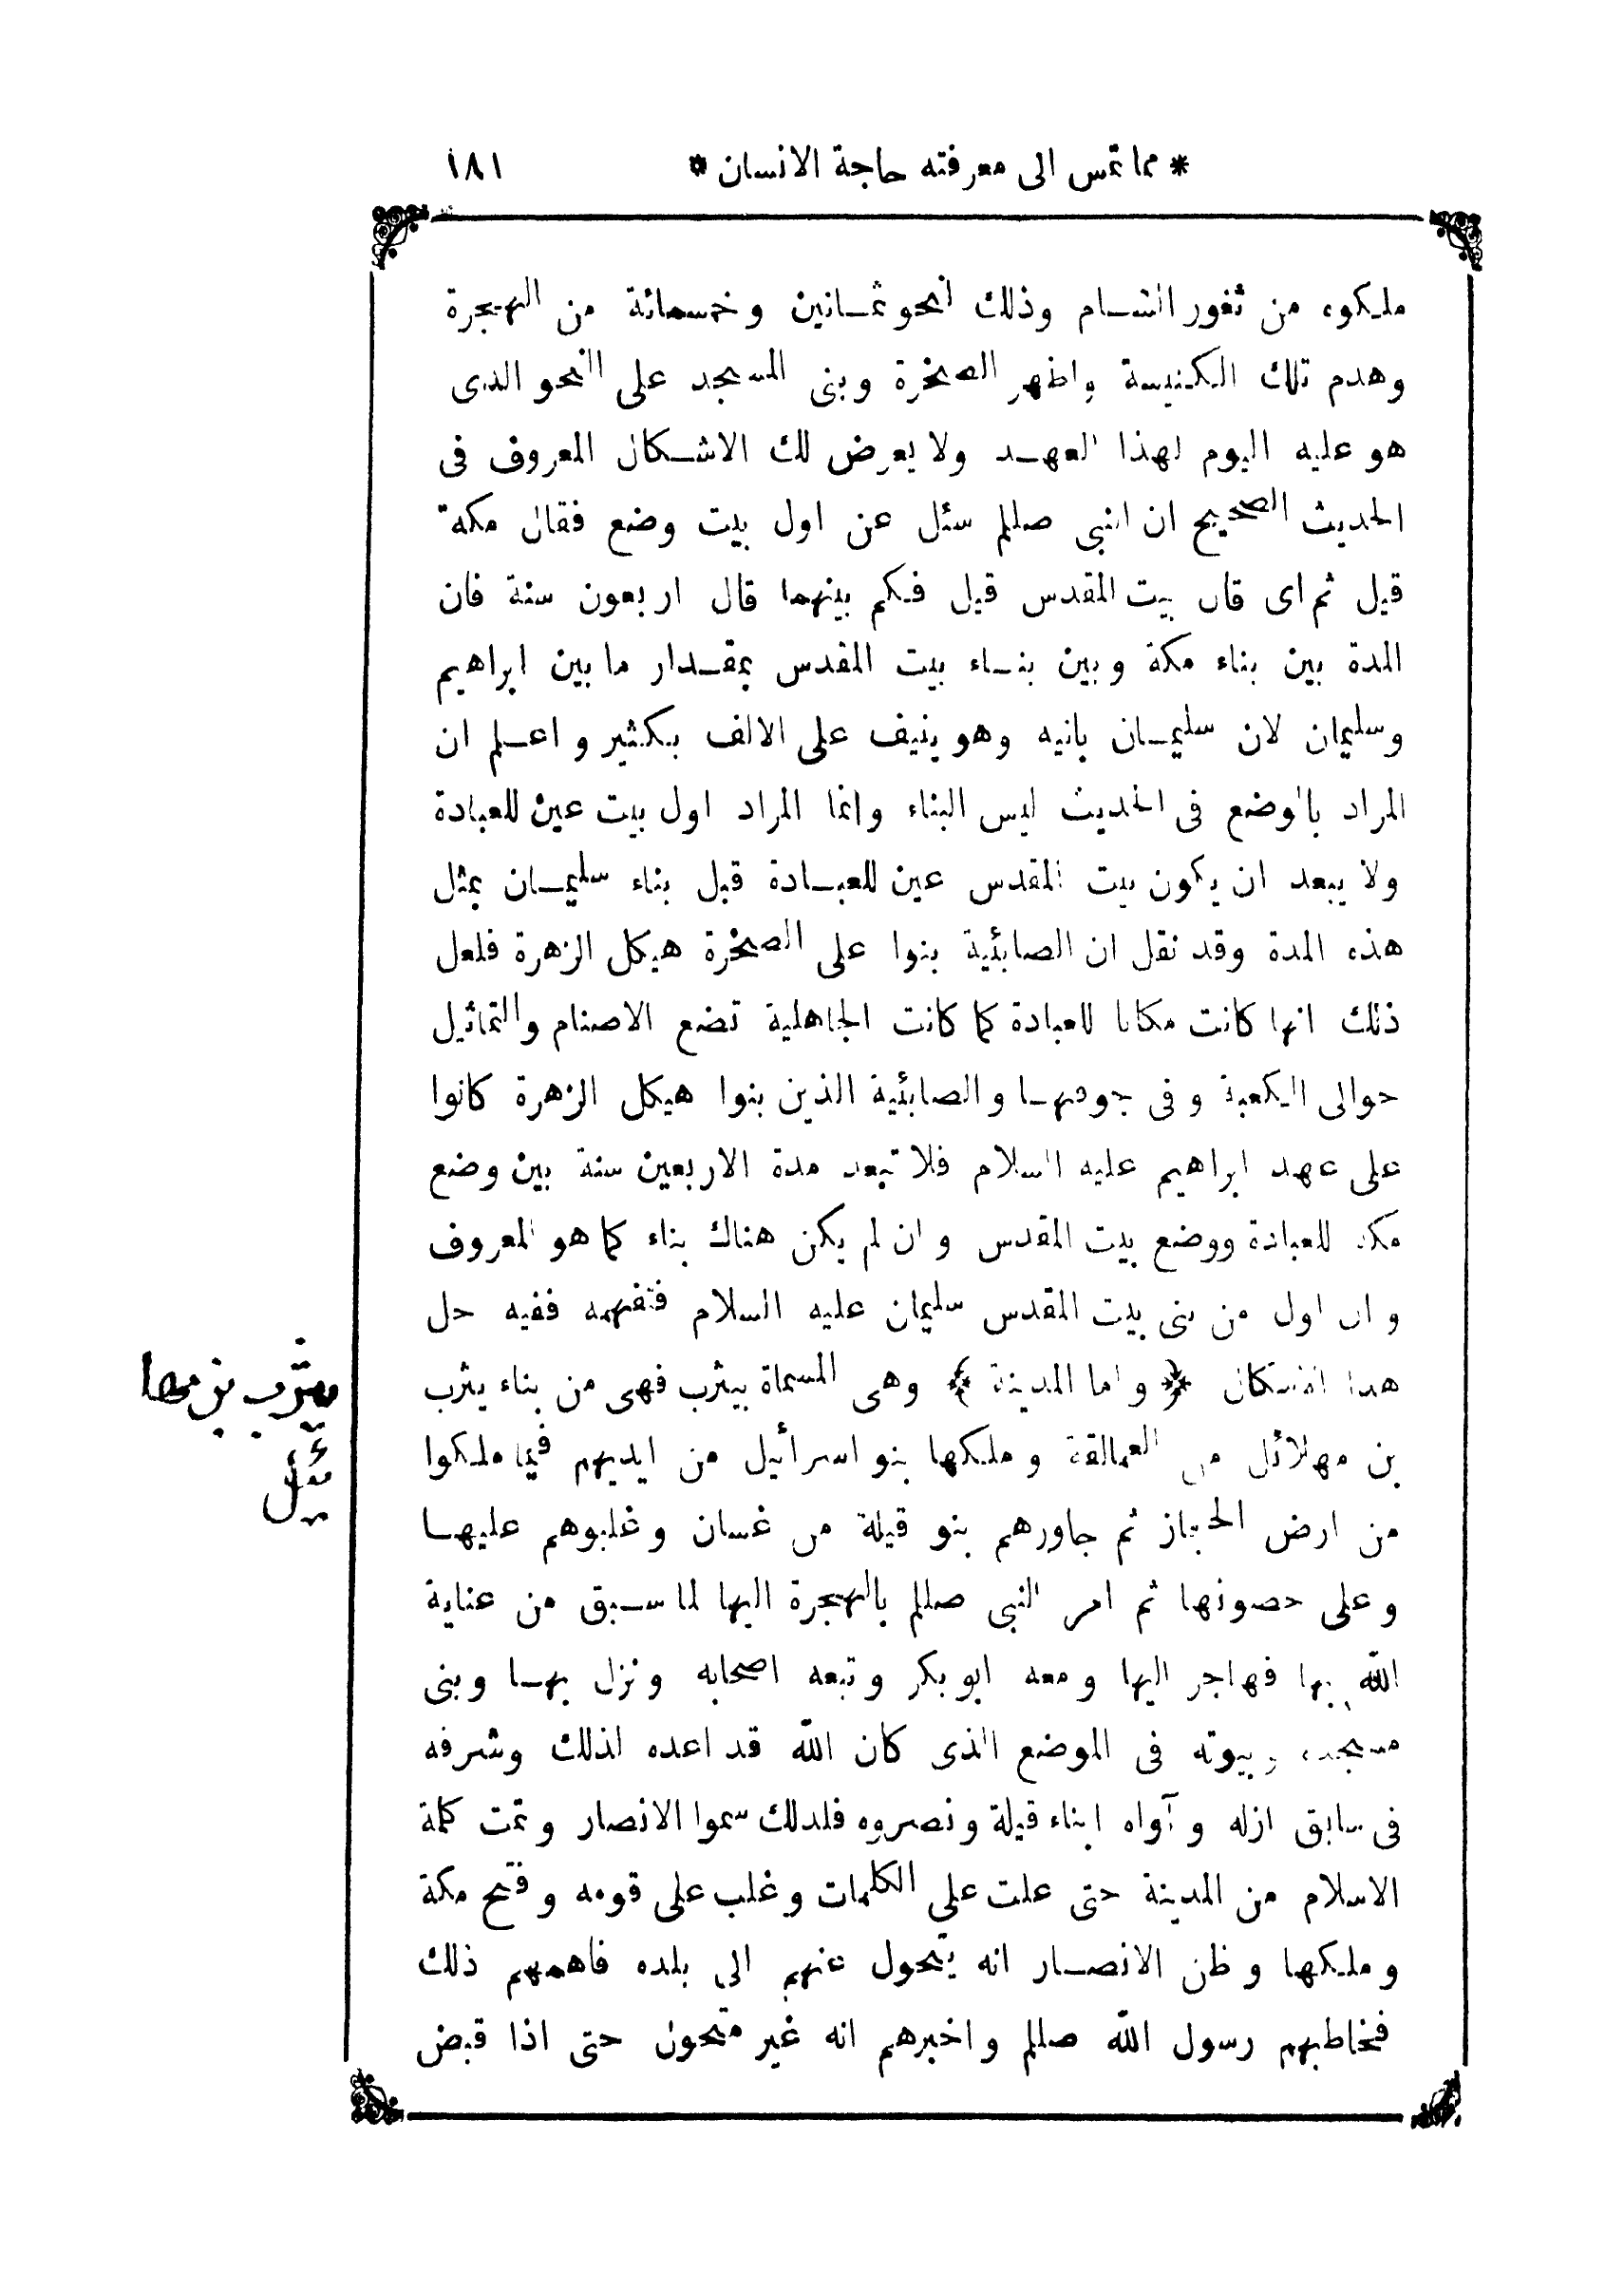 * مما تمس الى معرفته حاجة الانسان * ١٨١
ملكوه من ثغور الشام وذلك لنحو ثمانين وخمسمائة من الهجرة
وهدم تلك الكنيسة واظهر الصخرة وبنى المسجد على النحو الذى
هو عليه اليوم لهذا العهد ولا يعرض لك الاشكال المعروف فى
الحديث الصحيح ان النبى صللم سئل عن اول بيت وضع فقال مكة
قيل ثم اى قال بيت المقدس قيل فكم بينهما قال اربعون سنة فان
المدة بين بناء مكة وبين بناء بيت المقدس بمقدار ما بين ابراهيم
وسليمان لان سليمان بانيه وهو ينيف على الالف بكثير واعلم ان
المراد بالوضع فى الحديث ليس البناء وانما المراد اول بيت عين للعبادة
ولا يبعد ان يكون بيت المقدس عين للعبادة قبل بناء سليمان بمثل
هذه المدة وقد نقل ان الصابئية بنوا على الصخرة هيكل الزهرة فلعل
ذلك انها كانت مكانا للعبادة كما كانت الجاهلية تضع الاصنام والتماثيل
حوالى الكعبة وفى جوفها والصابئية الذين بنوا هيكل الزهرة كانوا
على عهد ابراهيم عليه السلام فلا تبعد مدة الاربعين سنة بين وضع
مكة للعبادة ووضع بيت المقدس وان لم يكن هناك بناء كما هو المعروف
وان اول من بنى بيت المقدس سليمان عليه السلام فتفهمه ففيه حل
هذا الاشكال ﴿ واما المدينة ﴾ وهى المسماة بيثرب فهى من بناء يثرب
بن مهلائل من العمالقة وملكها بنو اسرائيل من ايديهم فيما ملكوا
من ارض الحجاز ثم جاورهم بنو قيلة من غسان وغلبوهم عليها
وعلى حصونها ثم امر النبى صللم بالهجرة اليها لما سبق من عناية
الله بها فهاجر اليها ومعه ابو بكر وتبعه اصحابه ونزل بها وبنى
مسجده وبيوته فى الموضع الذى كان الله قد اعده لذلك وشرفه
فى سابق ازله وآواه ابناء قيلة ونصروه فلذلك سموا الانصار وتمت كلمة
الاسلام من المدينة حتى علت على الكلمات وغلب على قومه وفتح مكة
وملكها وظن الانصار انه يتحول عنهم الى بلده فاهمهم ذلك
فخاطبهم رسول الله صللم واخبرهم انه غير متحول حتى اذا قبض
يثرب بن مهلا
ئيل